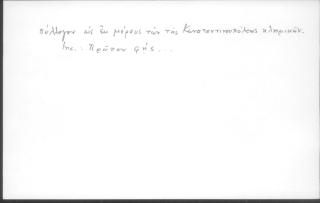 σύλλογον ὡς ἐκ μέρους τῶν τῆς Κωνσταντινουπόλεως κληρικῶν.
Inc.: Πρῶτον φής ...